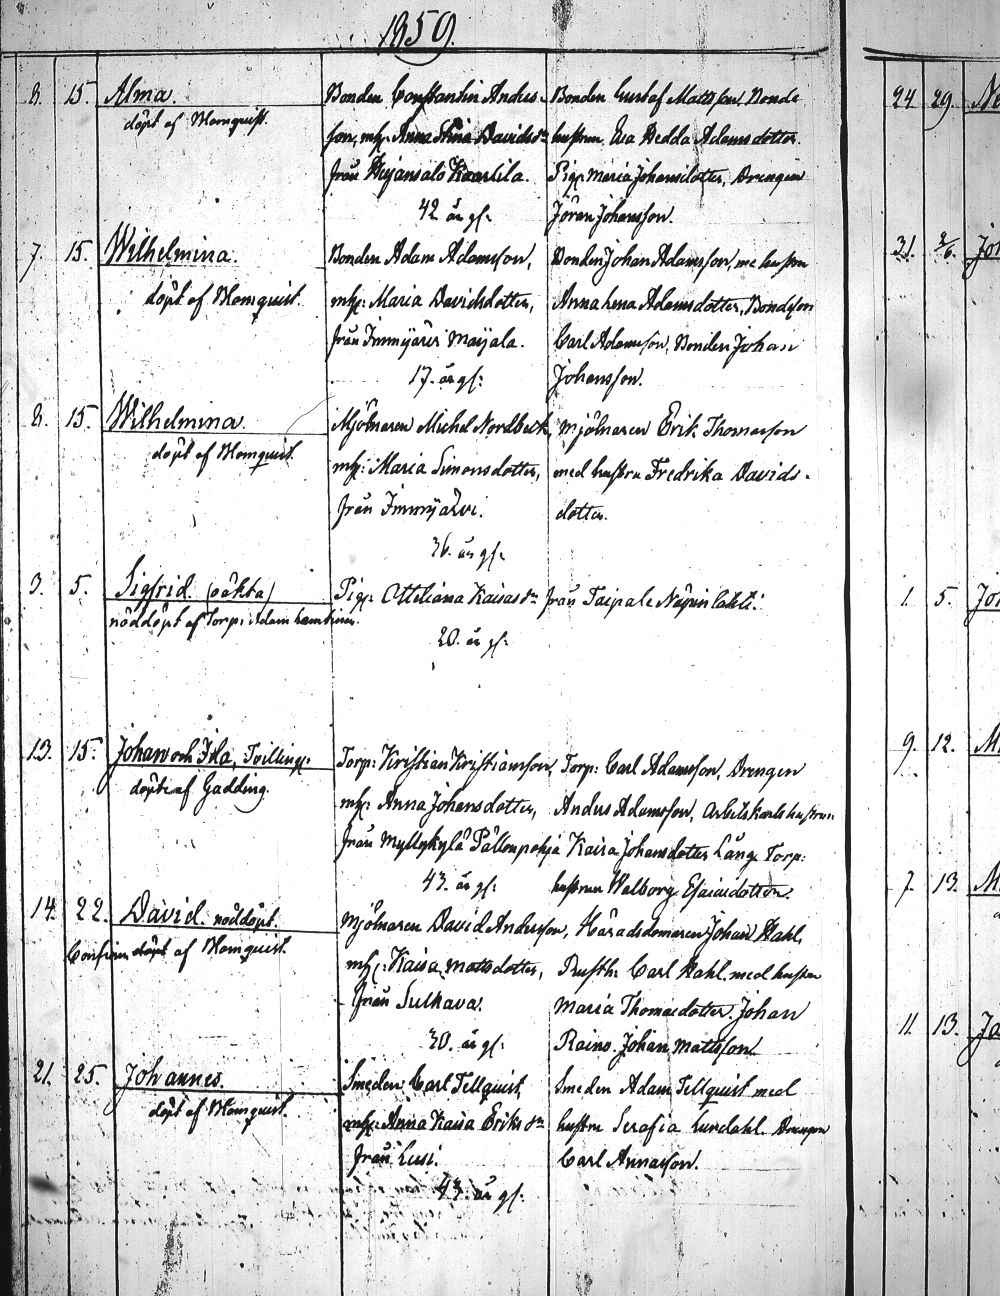 1859.
8. 15. Alma. Bonden Constantin Anders- Bonden Gustaf Mattsson, Bonde
döpt af Blomquist. son, mh: Anna Stina Davidsdr hustrun Eva Hedda Adamsdotter.
från Kaartila. Pig: Maria Johansdotter, Drengen
42 år gl: Jöran Johansson.
7. 15. Wilhelmina. Bonden Adam Adamsson, Bonden Johan Adamsson, me hustru
döpt af Blomquist. mh: Maria Davidsdotter, Anna Lena Adamsdotter, Bondeson
från Immjärvi Maijala. Carl Adamsson, Bonden Johan
17. år gl: Johansson.
8. 15. Wilhelmina. Mjölnaren Michel Nordbeck, Mjölnaren Erik Thomasson
döpt af Blomquist. mh: Maria Simonsdotter, med hustru Fredrika Davids-
från Immjärvi. dotter.
36. år gl:
3. 5. Sigfrid. (oäkta) Pig: Ottiliana Kaisasdr från Taipale Näpinlahti.
nöddöpt af Torp: Adam
20. år gl:
13. 15. Johan och Ida, Tvilling: Torp: Kristian Kristiansson, Torp: Carl Adamsson, Drengen
döpte af Gadding. mh: Anna Johansdotter, Anders Adamsson, Arbetskarls hustrun
från Myllykylä Pällönpohja Kaisa Johansdotter Lång, Torp:
43. år gl: hustrun Walborg Esaiasdotter.
14. 22. David. nöddöpt. Mjölnaren David Andersson, Häradsdomaren Johan Dahl,
Confirm döpt af Blomquist. mh: Kaisa Mattsdotter, Rusth: Carl Dahl med hustru
från Sulkava. Maria Thomasdotter. Johan
30. år gl: Raino. Johan Mattsson.
21. 25. Johannes. Smeden Carl Tellquist, Smeden Adam Tellquist med
döpt af Blomquist. mh: Anna Kaisa Eriksdr hustru Serafia Lundahl. Drengen
från Lusi. Carl Annasson.
43. år gl:
24 29.
31. 2/6.
1. 5.
9. 12.
7. 13.
11. 13.